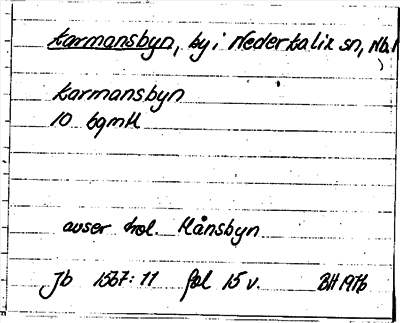 Karmansbyn, by i Nederkalix sn, Nb.l
Karmansbyn
10 bgmtl
avser trol. Månsbyn
Jb 1567:11 fol 15 v. BH 1976